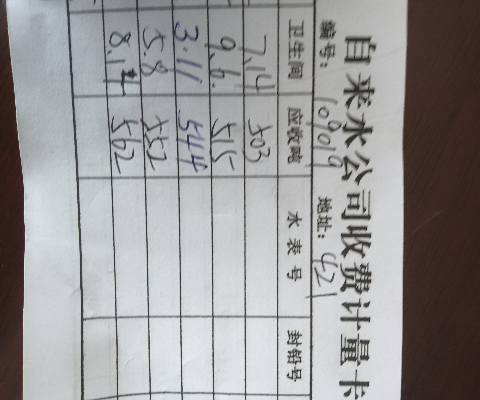 自来水公司收费计量卡
编号: 109019 地址: 421
卫生间 应收吨 水表号 封铅号
7.14 503
9.6. 515
3.11 544
5.8 552
8.14 562